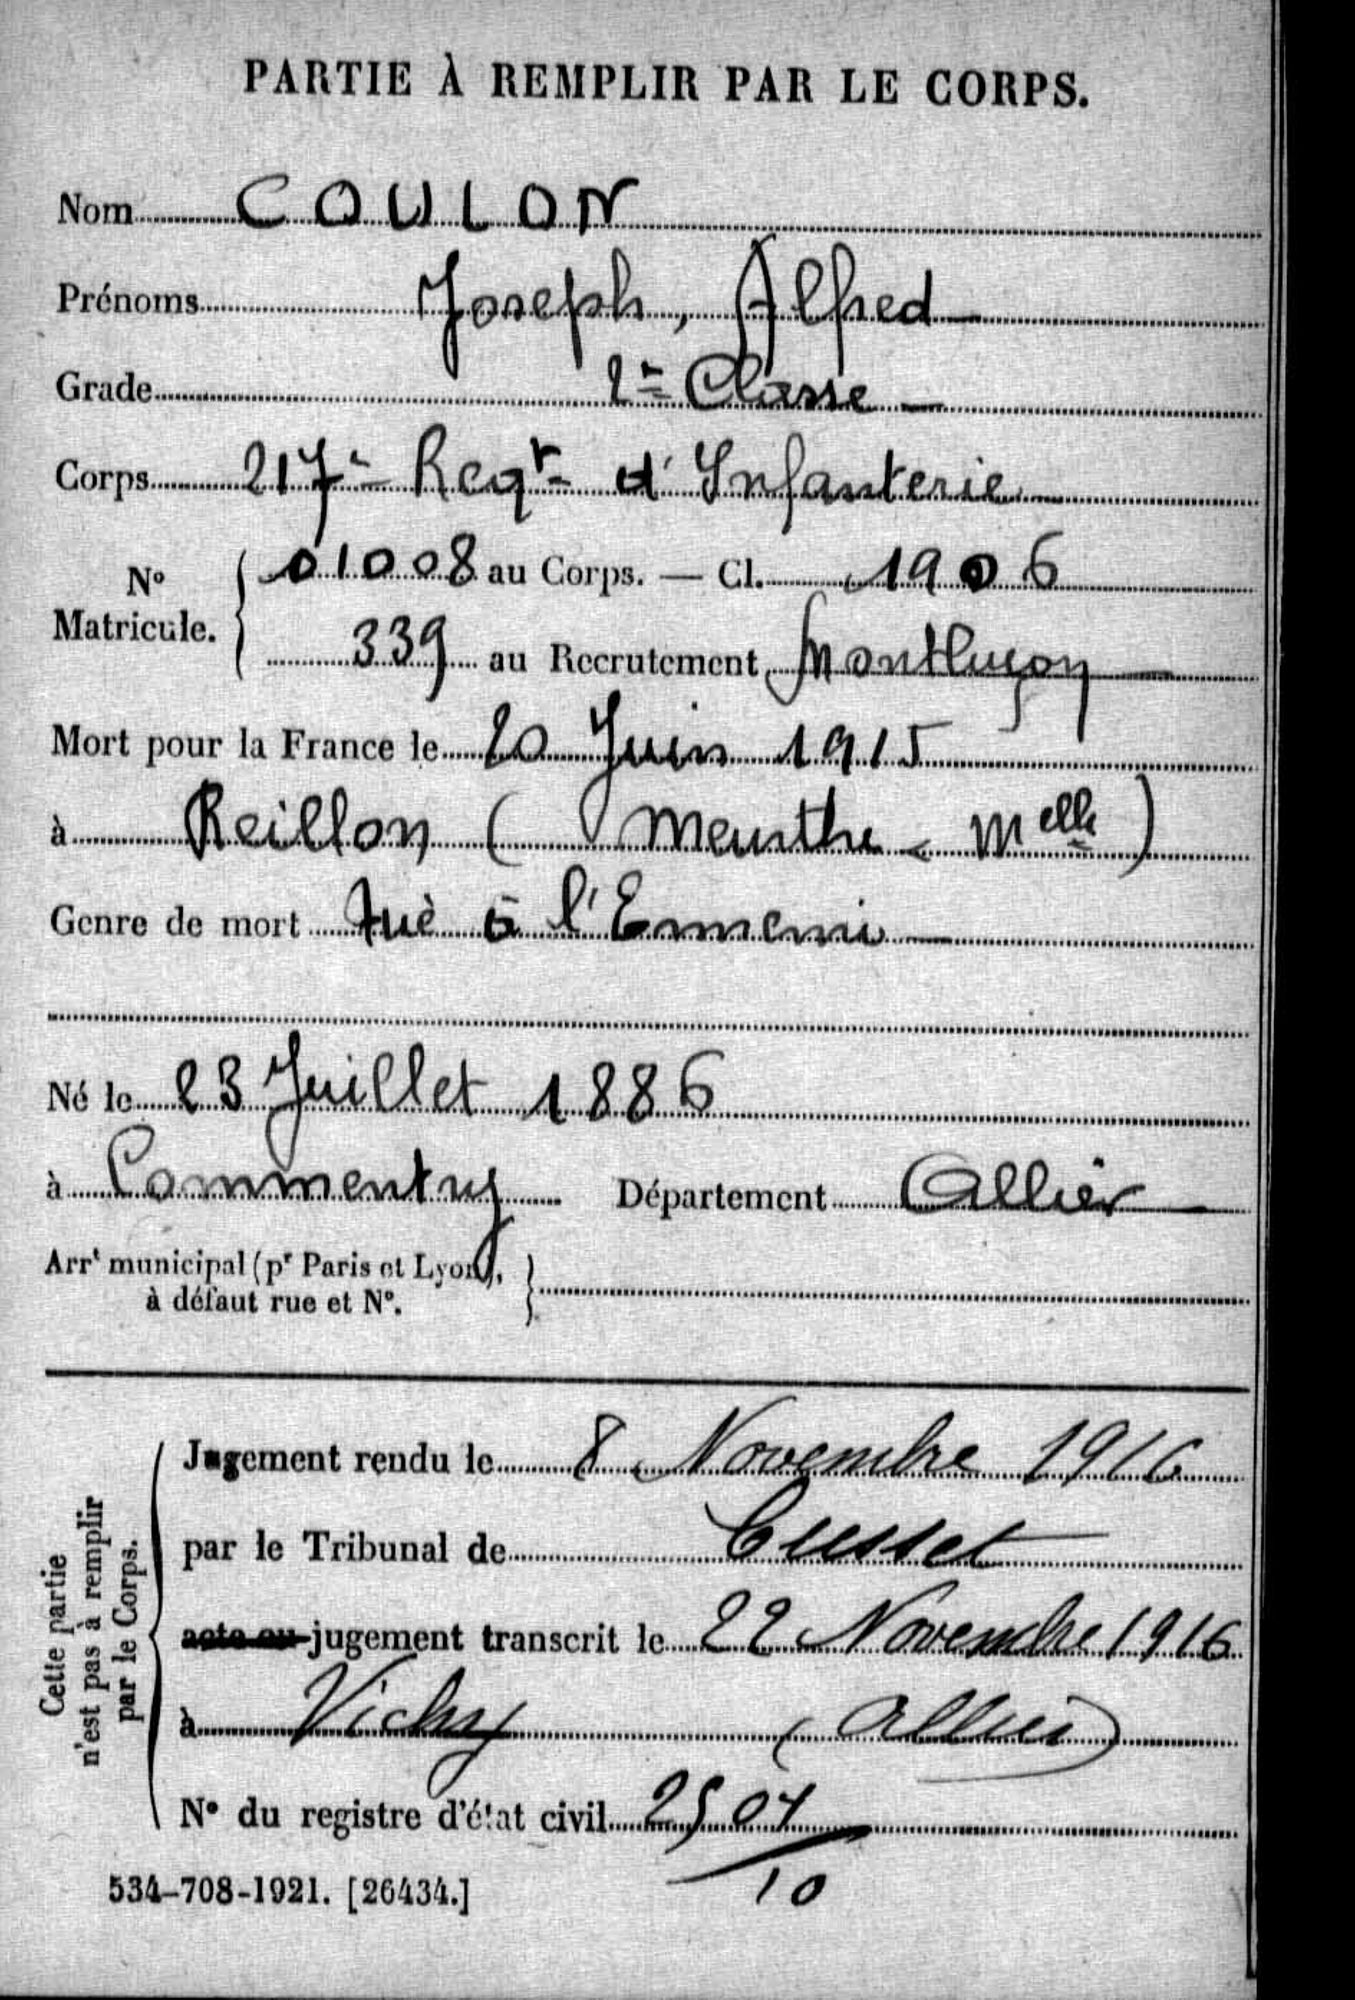 PARTIE À REMPLIR PAR LE CORPS.
Nom COULON
Prénoms Joseph, Alfred
Grade 2e Classe
Corps 217e Regt d'Infanterie
N° Matricule. 01008 au Corps. — Cl. 1906
339 au Recrutement Montluçon
Mort pour la France le 20 Juin 1915
à Reillon (Meurthe-Melle)
Genre de mort Tué à l'Ennemi
Né le 23 Juillet 1886
à Commentry Département Allier
Arrt municipal (pr Paris et Lyon),
à défaut rue et N°.
Cette partie
n'est pas à remplir
par le Corps.
Jugement rendu le 8 Novembre 1916
par le Tribunal de Cusset
acte ou jugement transcrit le 22 Novembre 1916
à Vichy (Allier)
N° du registre d'état civil
10
534-708-1921. [26434.]